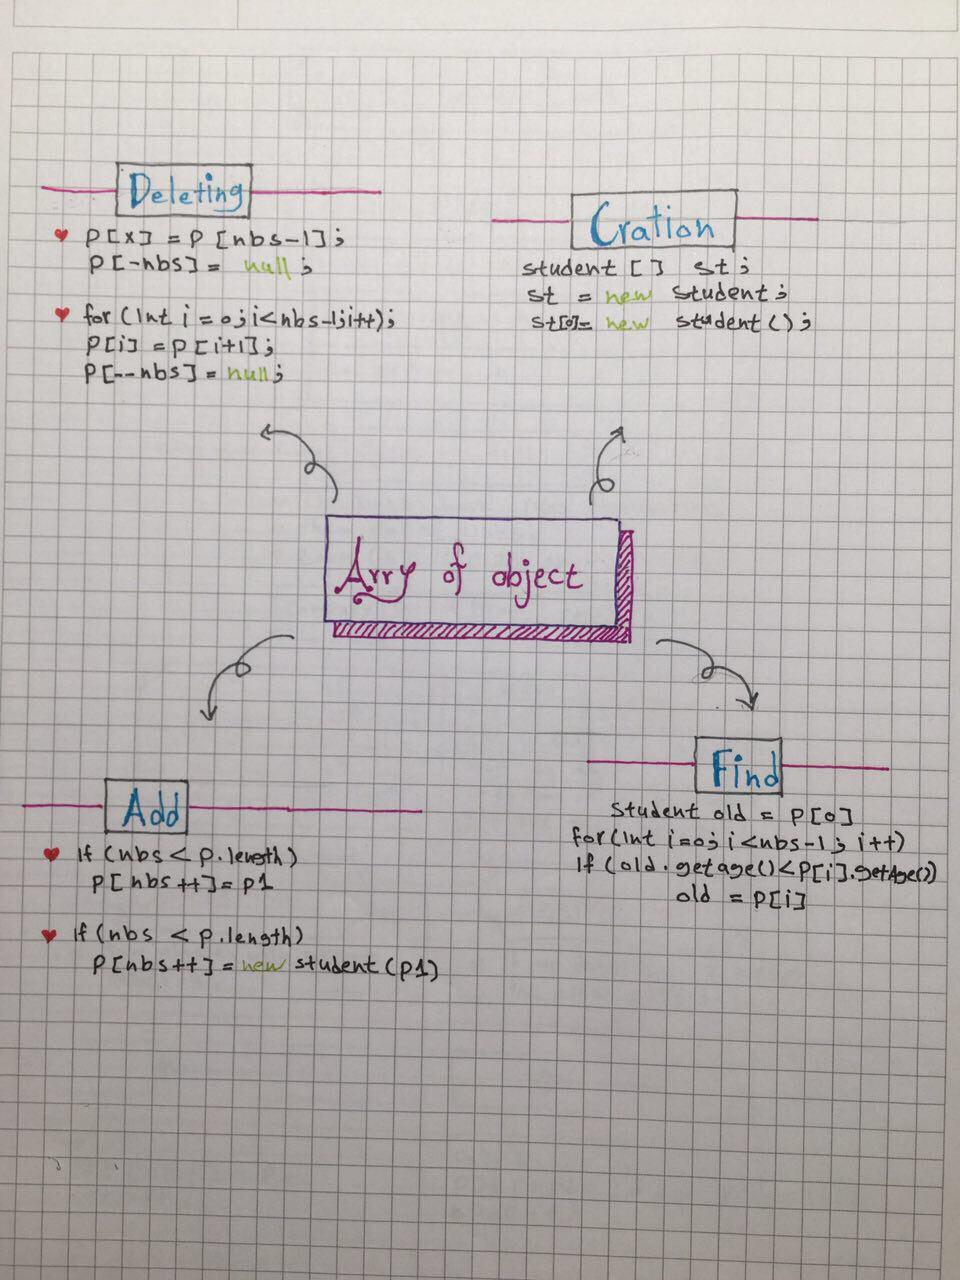 Deleting
P[x] = P[nbs-1];
P[-nbs] = null;
for(Int i=0;i<nbs-1;i++);
P[i] = P[i+1];
P[--nbs] = null;
Cration
student [] st;
st = new student;
st[0]= new student();
Arry of object
Add
If (nbs < p.length)
P[nbs++]=p1
If (nbs < p.length)
P[nbs++]= new student (p1)
Find
Student old = P[0]
for(Int i=0; i<nbs-1; i++)
If (old.getage()<P[i].getAge())
old = P[i]